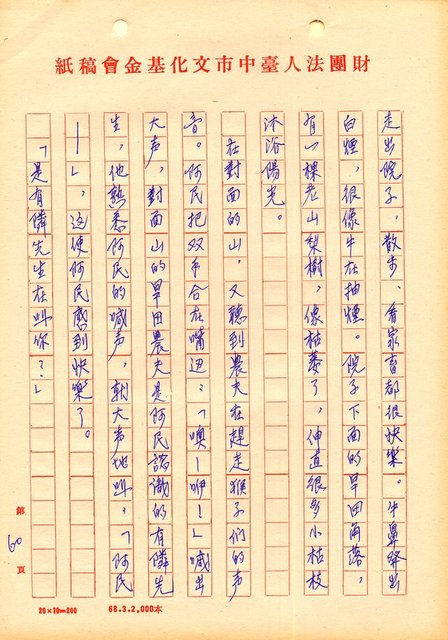 財團法人臺中市文化基金會稿紙
走出院子，散步，看家畜都很快樂。牛鼻孔噴出
白煙，很像牛在抽煙。院子下面的旱田角落，
有一棵老山梨樹，像枯萎了，伸直很多小枯枝
沐浴陽光。
在對面的山，又聽到農夫在趕走猴子們的声
音。阿民把双手合在嘴边：「噢－咿！」喊出
大声，對面山的旱田農夫是阿民認識的有隣先
生，他熟悉阿民的喊声，朝大声地叫：「阿民
－」，这使阿民感到快樂了。
「是有隣先生在叫你？」
第60頁
20×10＝200
68.3.2,000本